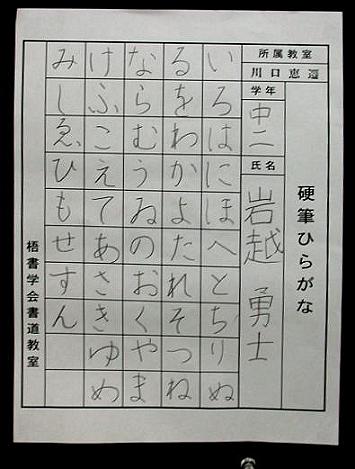 硬筆ひらがな
所属教室
川口恵
学年
中二
氏名
岩越 勇士
いろはにほへとちりぬ
るをわかよたれそつね
ならむうゐのおくやま
けふこえてあさきゆめ
みしゑひもせすん
梧書学会書道教室